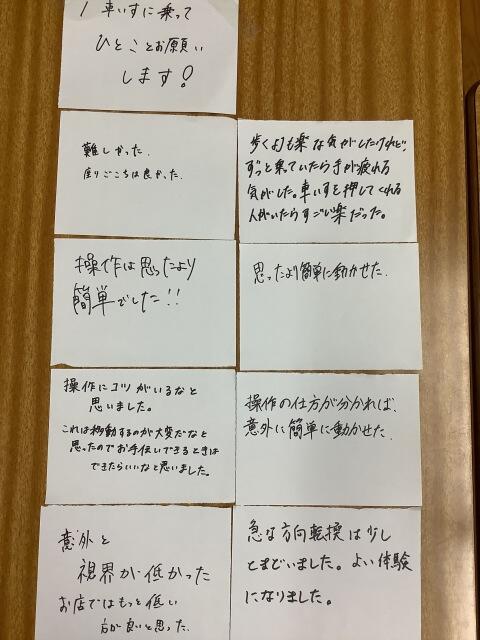 車いすに乗って
ひとことお願い
します!
難しかった.
座りごこちは良かった.
歩くよりも楽な気がしたけれど、
ずっと乗ていたら手が疲れる
気がした。車いすを押してくれる
人がいたらすごい楽だった。
操作は思ったより
簡単でした!!
思ったより簡単に動かせた.
操作にコツがいるなと
思いました。
これは移動するのが大変だなと
思ったのでお手伝いできるときは
できたらいいなと思いました。
操作の仕方が分かれば、
意外に簡単に動かせた.
意外と
視界が低かった
お店ではもっと低い
方が良いと思った.
急な方向転換は少し
とまどいました。よい体験
になりました。